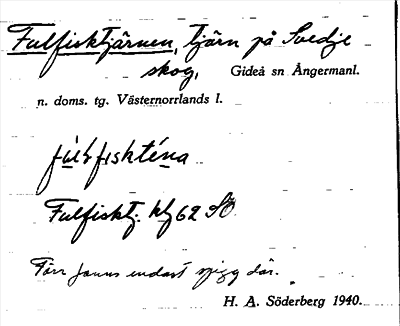 Fulfisktjärnen, tjärn på Svedje
skog, Gideå sn Ångermanl.
n. doms. tg. Västernorrlands l.
Fulfisktj. kbl 62 SÖ
Förr fanns endast spigg där.
H. A. Söderberg 1940.